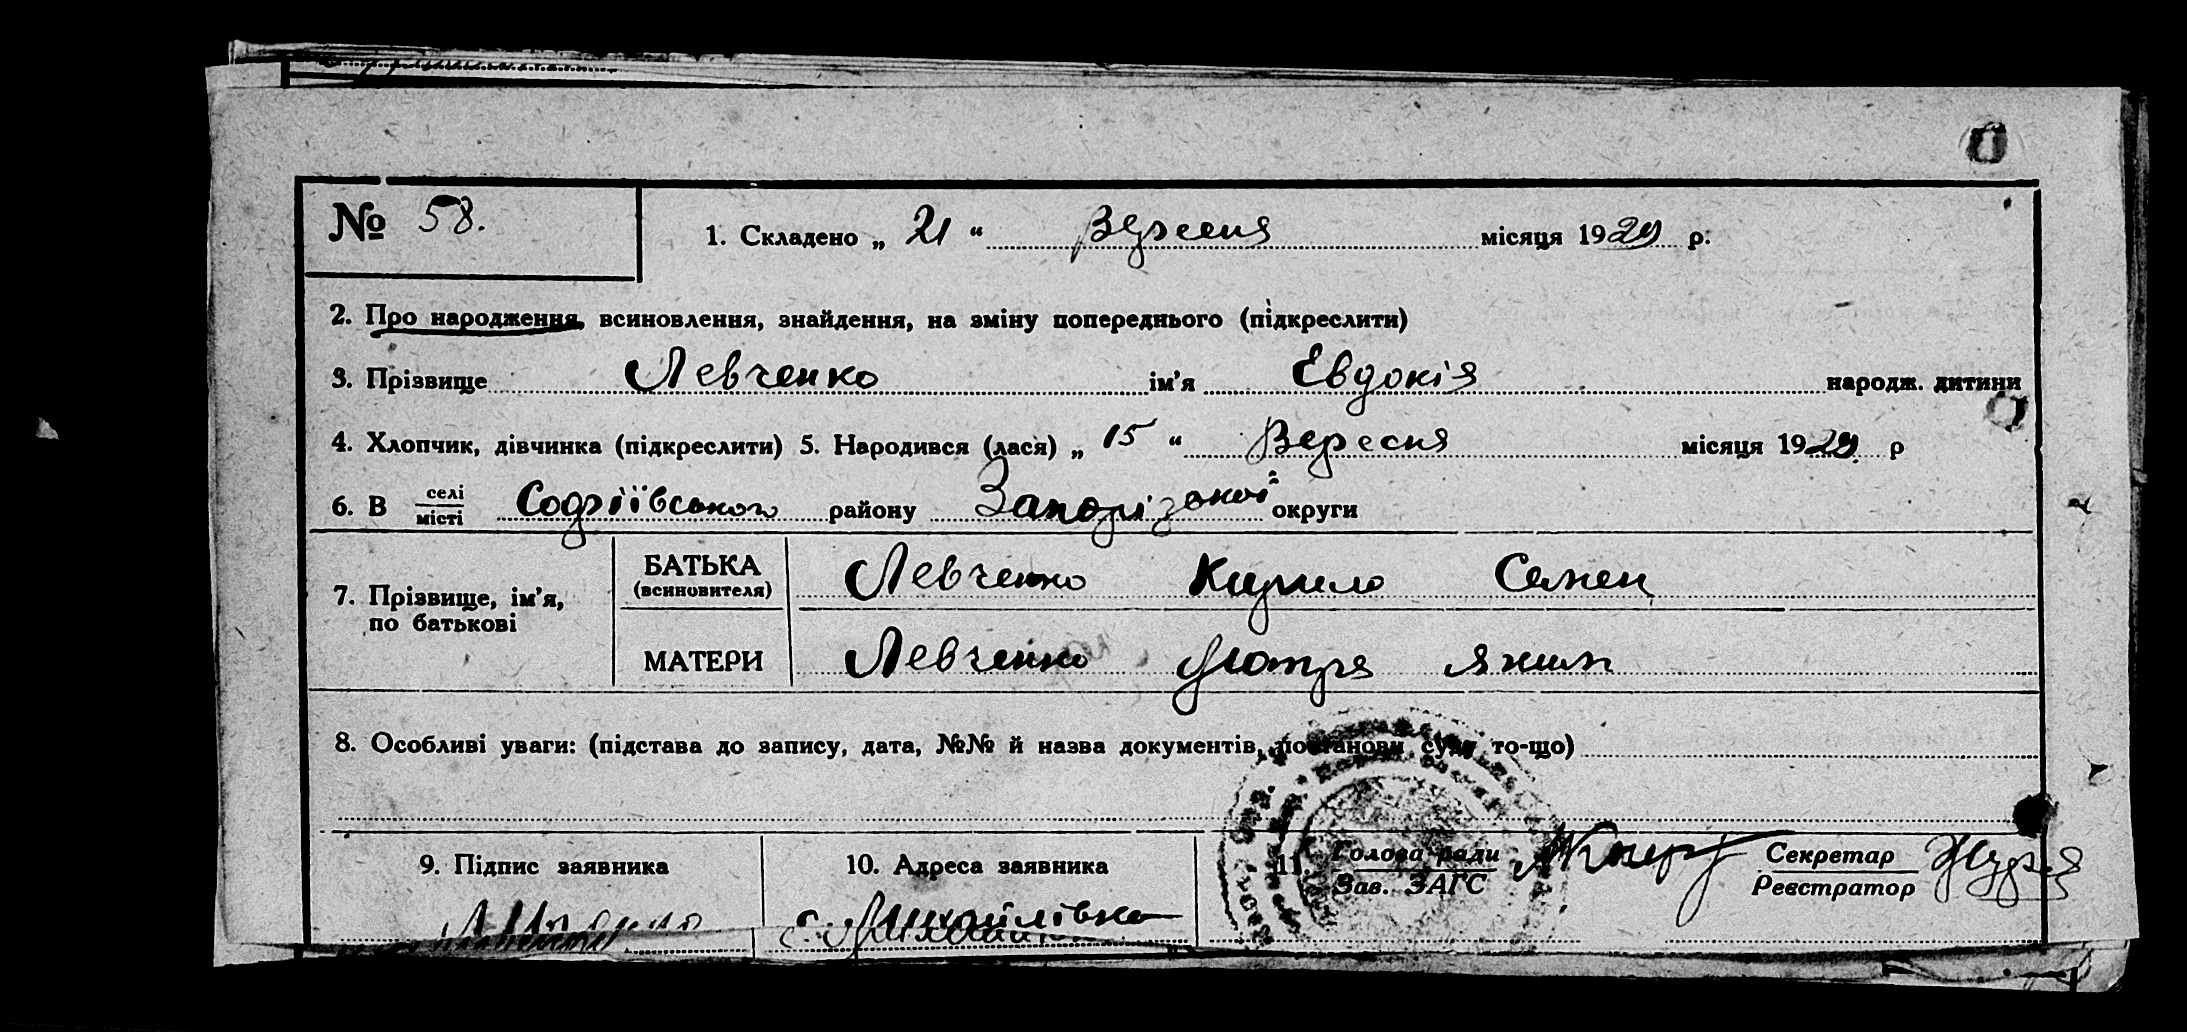 № 58.
1. Складено „ 21 “ Вересня місяця 1929 р.
2. Про народження, всиновлення, знайдення, на зміну попереднього (підкреслити)
3. Прізвище Левченко ім’я Евдокія народж. дитини
4. Хлопчик, дівчинка (підкреслити) 5. Народився (лася) „ 15 “ Вересня місяця 1929 р
6. В селі місті Софіївського району Запорізької округи
7. Прізвище, ім’я, по батькові
БАТЬКА (всиновителя) Левченко Кирило Семен
МАТЕРИ Левченко Мотря Яким
8. Особливі уваги: (підстава до запису, дата, №№ й назва документів, постанови суду то-що)
9. Підпис заявника
10. Адреса заявника
с. Михайлівка
11. Голова ради Зав. ЗАГС
Секретар Реєстратор